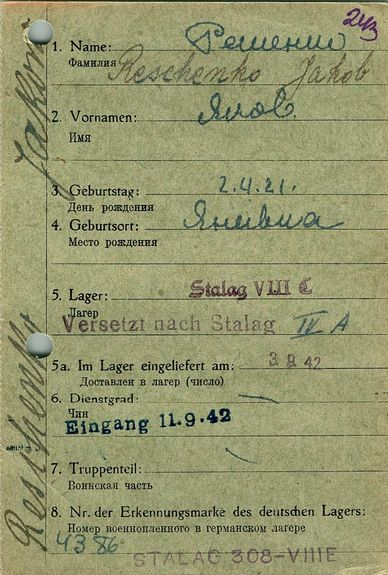 243
1. Name: Решенко
Фамилия Reschenko Jakob
2. Vornamen: Яков
Имя
3. Geburtstag: 2.4.21.
День рождения
4. Geburtsort:
Место рождения
5. Lager: Stalag VIII C
Лагер
Versetzt nach Stalag IV A
5a. Im Lager eingeliefert am: 3 9 42
Доставлен в лагер (число)
6. Dienstgrad: —
Чин
Eingang 11.9.42
7. Truppenteil:
Воинская часть
8. Nr. der Erkennungsmarke des deutschen Lagers:
Номер военнопленного в германском лагере
4386
STALAG 308-VIIIE
Reschenko Jakob